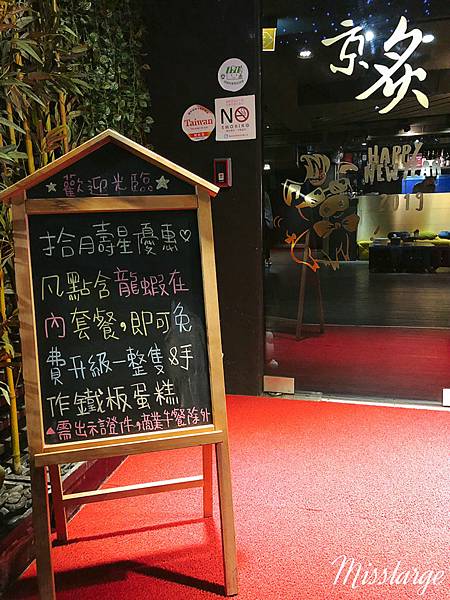 京炙
Taiwan
NO
SMOKING
HAPPY
NEW YEAR
2019
歡迎光臨
拾月壽星優惠♡
凡點含龍蝦在
內套餐,即可免
費升級一整隻&手
作鐵板蛋糕
▲需出示證件,商業午餐除外
Misstarge